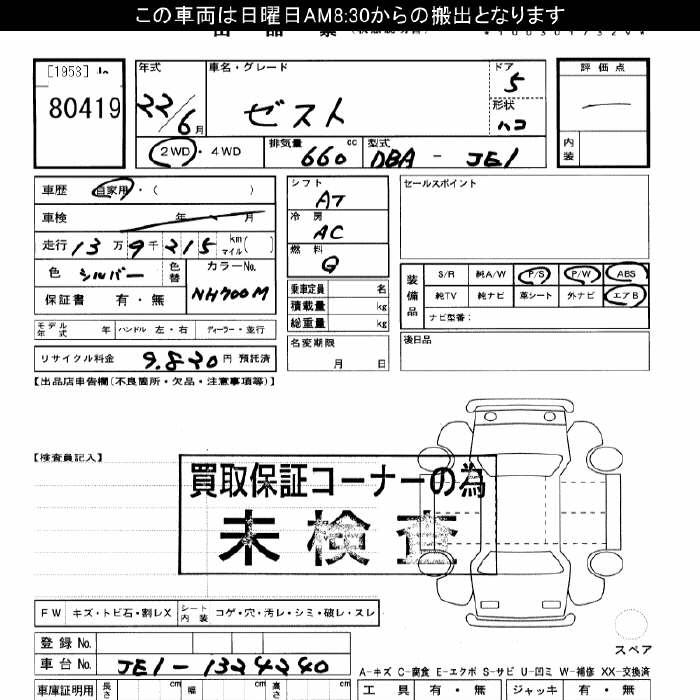 この車両は日曜日AM8:30からの搬出となります
[1953]
80419
年式
22/6月
車名・グレード
ゼスト
ドア
5
形状
ハコ
評価点
内装
2WD・4WD
排気量 660 cc
型式 DBA - JE1
車歴 自家用・( )
車検 年 月
走行 13万9千215 km マイル( )
色 シルバー
色替
カラーNo.
NH700M
保証書 有・無
モデル年式 年 ハンドル 左・右 ディーラー・並行
リサイクル料金 9,820 円 預託済
シフト
AT
冷房
AC
燃料
G
乗車定員 名
積載量 kg
総重量 kg
名変期限
月 日
セールスポイント
装備品
S/R 純A/W P/S P/W ABS
純TV 純ナビ 革シート 外ナビ エアB
ナビ型番:
後日品
【出品店申告欄(不良箇所・欠品・注意事項等)】
【検査員記入】
買取保証コーナーの為
未検査
FW キズ・トビ石・割レX シート内装 コゲ・穴・汚レ・シミ・破レ・スレ
スペア
登録No.
車台No. JE1-1324240
A-キズ C-腐食 E-エクボ S-サビ U-凹ミ W-補修 XX-交換済
車庫証明用 長さ cm 幅 cm 高さ cm
工具 有・無 ジャッキ 有・無